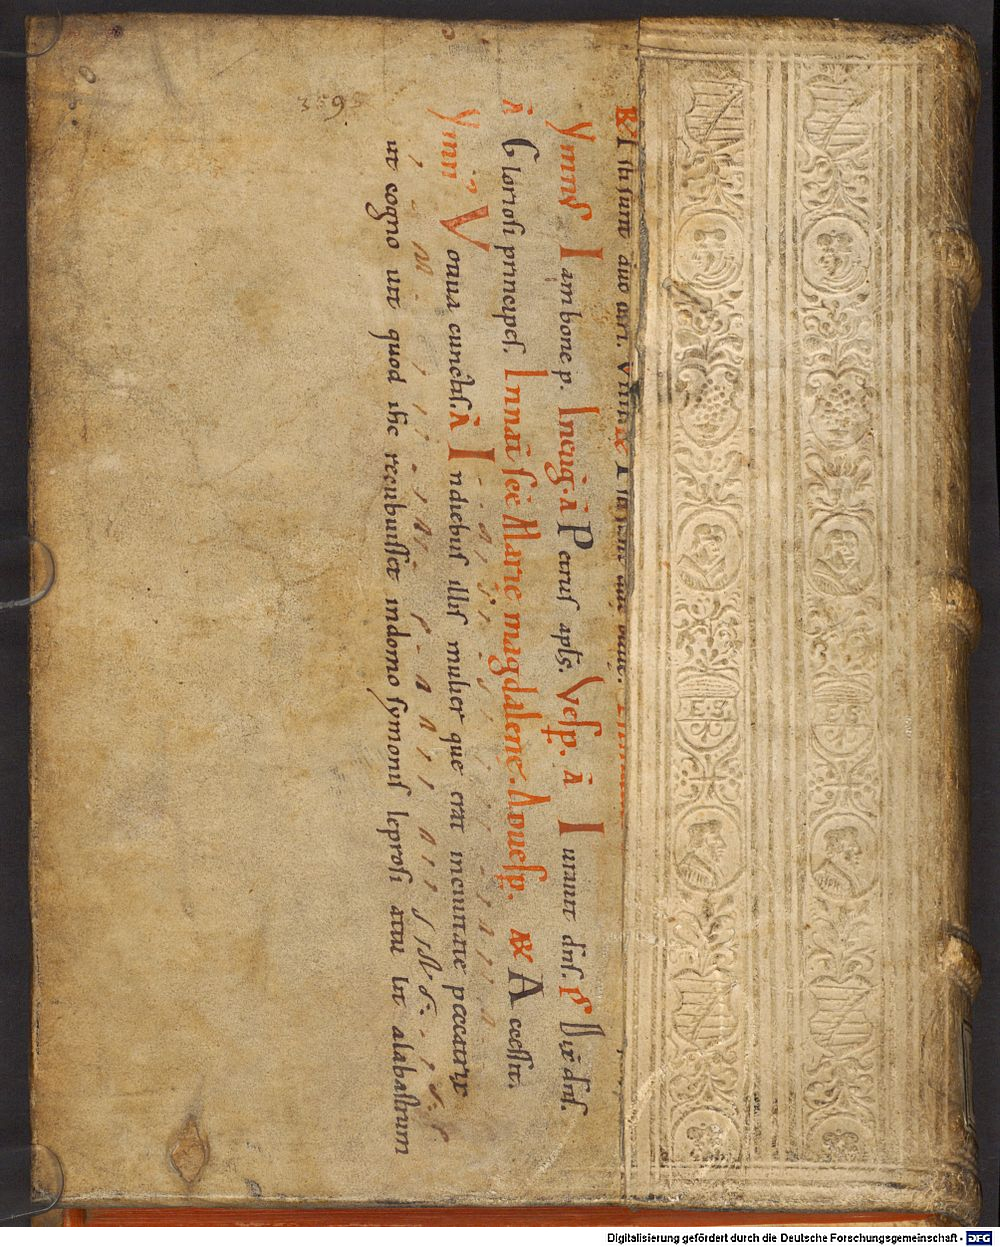 Isti sunt duo uiri.
Ymnus Iam bone p. In eug. a Petrus apls. Vesp. a Iurauit dns. ps Dix dns.
a Gloriosi principes. In nat sce Marie magdalene. Ad uesp. R Accessit.
Ymn Votiua cunctis. a In diebus illis mulier que erat in ciuitate peccatrix
ut cogno uit quod ihc recubuisset in domo symonis leprosi attu lit alabastrum
E S
E S
Digitalisierung gefördert durch die Deutsche Forschungsgemeinschaft - DFG